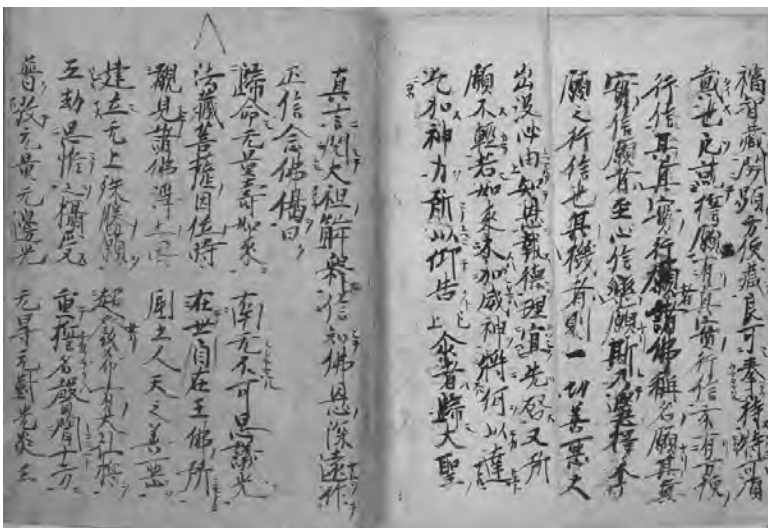 福智藏開顯方便藏良可奉持特可頂
戴也凡就誓願有真實行信亦有方便
行信其真實行願者諸佛稱名願其真
實信願者至心信樂願斯乃選擇本
願之行信也其機者則一切善惡大
出沒必由知恩報德理宜先啓又所
願不輕若如來不加威神將何以達
乞加神力所以仰告上已尒者歸大聖
真言閲大祖解釋信知佛恩深遠作
正信念佛偈曰
歸命无量壽如來 南无不可思議光
法藏菩薩因位時 在世自在王佛所
覩見諸佛淨土因 國土人天之善惡
建立无上殊勝願 超發希有大弘誓
五劫思惟之攝受 重誓名聲聞十方
普放无量无邊光 无㝵无對光炎王